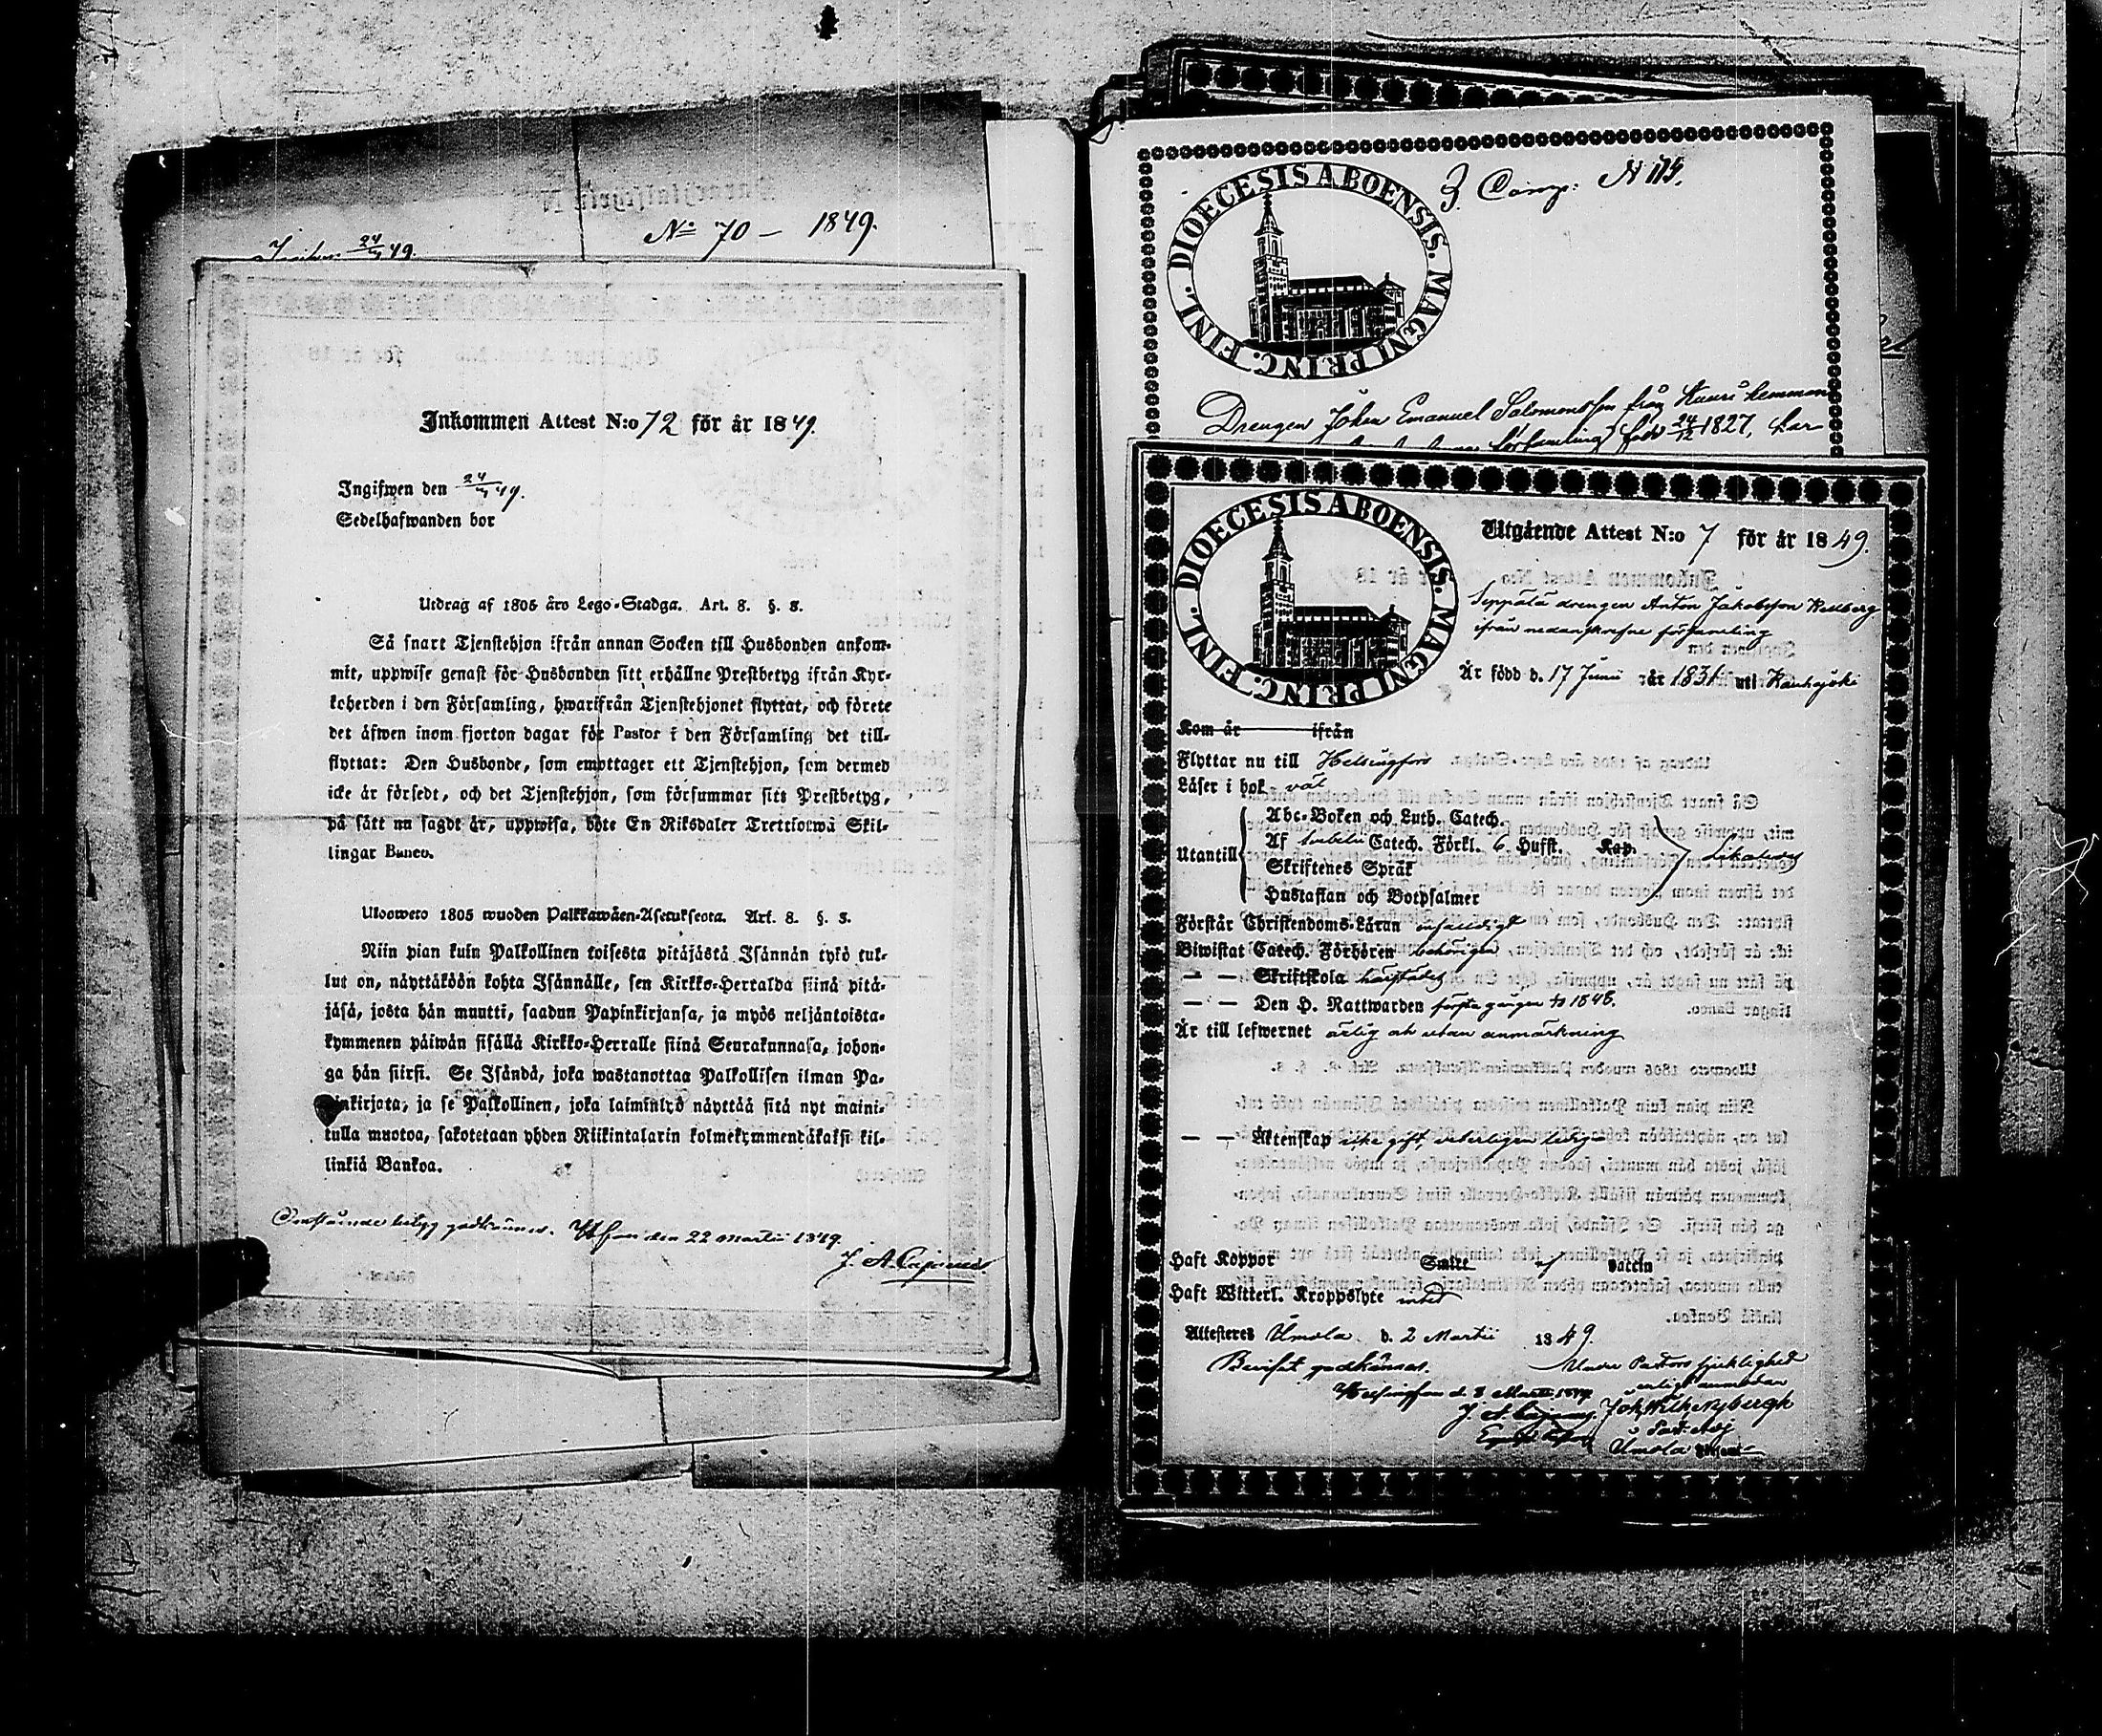 No 70 – 1849.
24/4 49.
Inkommen Attest N:o 72 för år 1849.
Ingifwen den 24/4 49.
Sedelhafwanden bor
Utdrag af 1805 åro Lego-Stadga. Art. 8. §. 8.
Så snart Tjenstehjon ifrån annan Socken till Husbonden ankom-
mit, uppwise genast för Husbonden sitt erhållne Prestbetyg ifrån Kyr-
koherden i den Församling, hwarifrån Tjenstehjonet flyttat, och förete
det äfwen inom fjorton dagar för Pastor i den Församling det till-
flyttat: Den Husbonde, som emottager ett Tjenstehjon, som dermed
icke är försedt, och det Tjenstehjon, som försummar sitt Prestbetyg,
på sätt nu sagdt är, uppwisa, böte En Riksdaler Trettiotwå Skil-
lingar Banco.
Uloswето 1805 wuoden Palkkawäen-Asetuksesta. Art. 8. §. 8.
Niin pian kuin Palkollinen toisesta pitäjästä Isännän tykö tul-
lut on, näyttäköön kohta Isännälle, sen Kirkko-Herralda siinä pitä-
jäsä, josta hän muutti, saadun Papinkirjansa, ja myös neljäntoista-
kymmenen päiwän sisällä Kirkko-Herralle siinä Seurakunnasa, johon-
ga hän siirsi. Se Isändä, joka wastanottaa Palkollisen ilman Pa-
pinkirjata, ja se Palkollinen, joka laiminlyö näyttää sitä nyt maini-
tulla muotoa, sakotetaan yhden Riikintalarin kolmekymmentäkaksi kil-
linkiä Bankoa.
betyg godkännes. den 22 Martii 1849.
J. A. Cajanus
DIOECESIS ABOENSIS. MAGNI PRINC. FINL.
3 Comp: N 119.
Drengen Johan Emanuel Salomonsson från Kuuri hemman
församling född 24/12 1827, har
DIOECESIS ABOENSIS. MAGNI PRINC. FINL.
Utgående Attest N:o 7 för år 1849.
Seppälä drengen Anton Jakobsson
ifrån nedanskrefne församling
Är född d. 17 Junii år 1831 uti Kauhajoki
Kom år ifrån
Flyttar nu till Helsingfors
Läser i bok väl
Abc-Boken och Luth. Catech.
Utantill Af Catech. Förkl. 6 Hufst. Kap.
Skriftenes Språk
Hustaflan och Botpsalmer
Förstår Christendoms-Läran enfaldigt
Biwistat Catech. Förhören behörigen
— — Skriftskola härstädes
— — Den H. Nattwarden första gången 1848.
Är till lefwernet ärlig och utan anmärkning
— — Äktenskap icke gift, veterligen ledig
Haft Koppor Smitt Vaccin
Haft Witterl. Kroppslyte intet
Attesteres Urmola d. 2 Martii 1849.
Beviset godkännes.
Under Pastors sjuklighet
Helsingfors d. 8 Martii 1849.